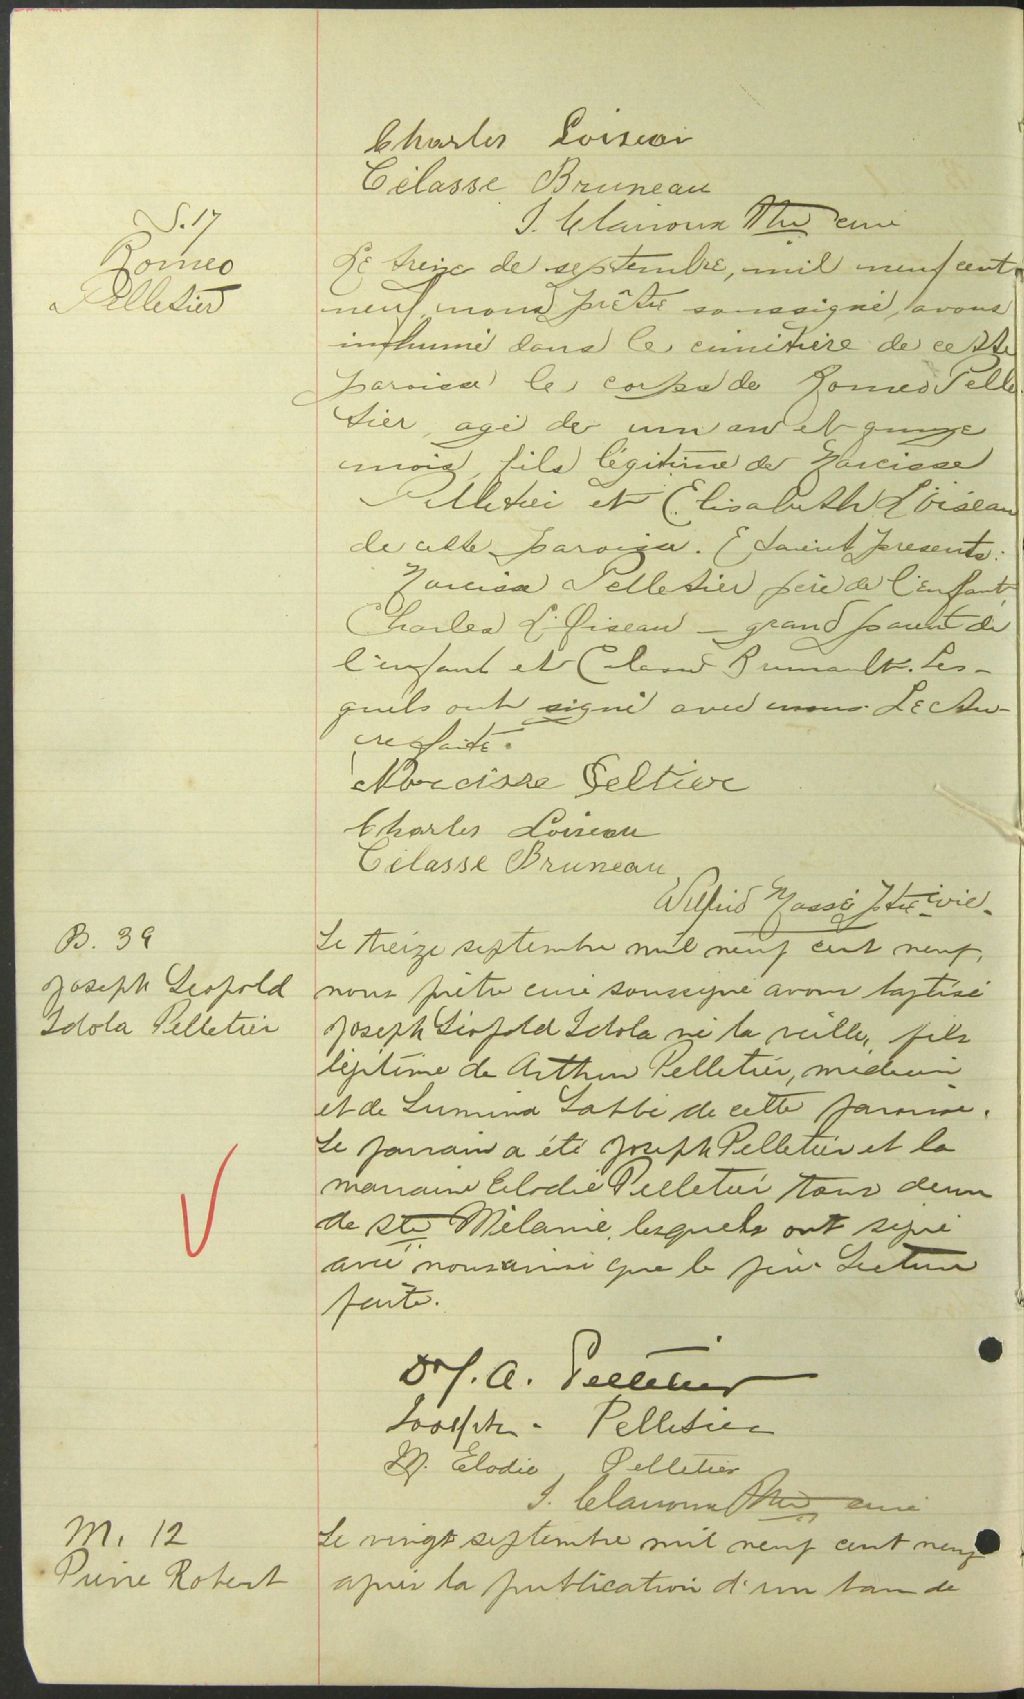 Charles Loiseau
Célasse Bruneau
J. Clairoux Ptre curé
S. 17
Romeo
Pelletier
Le treize de septembre, mil neuf cent
neuf, nous prêtre soussigné, avons
inhumé dans le cimitière de cette
paroisse le corps de Romeo Pelle
tier, agé de un an et quinze
mois, fils légitime de Narcisse
Pelletier et Elisabeth L'Oiseau
de cette paroisse. Etaient presents:
Narcisse Pelletier père de l'enfant,
Charles L'Oiseau - grand parent de
l'enfant et Bruneault. Les-
quels ont signé avec nous. Lectu-
re faite.
Narcisse Peltier
Charles Loiseau
Célasse Bruneau
Wilfrid Massé ptre vic.
B. 39
Joseph Leopold
Idola Pelletier
Le treize septembre mil neuf cent neuf,
nous prêtre curé soussigné avons baptisé
Joseph Léopold Idola né la veille, fils
légitime de Arthur Pelletier, médecin
et de Lumina Labbé de cette paroisse.
Le parrain a été Joseph Pelletier et la
marraine Elodie Pelletier tous deux
de Ste Mélanie, lesquels ont signé
avec nous ainsi que le père. Lecture
faite.
Dr J. A. Pelletier
Joseph Pelletier
M. Elodie Pelletier
J. Clairoux Ptre curé
M. 12
Pierre Robert
Le vingt septembre mil neuf cent neuf
après la publication d'un ban de